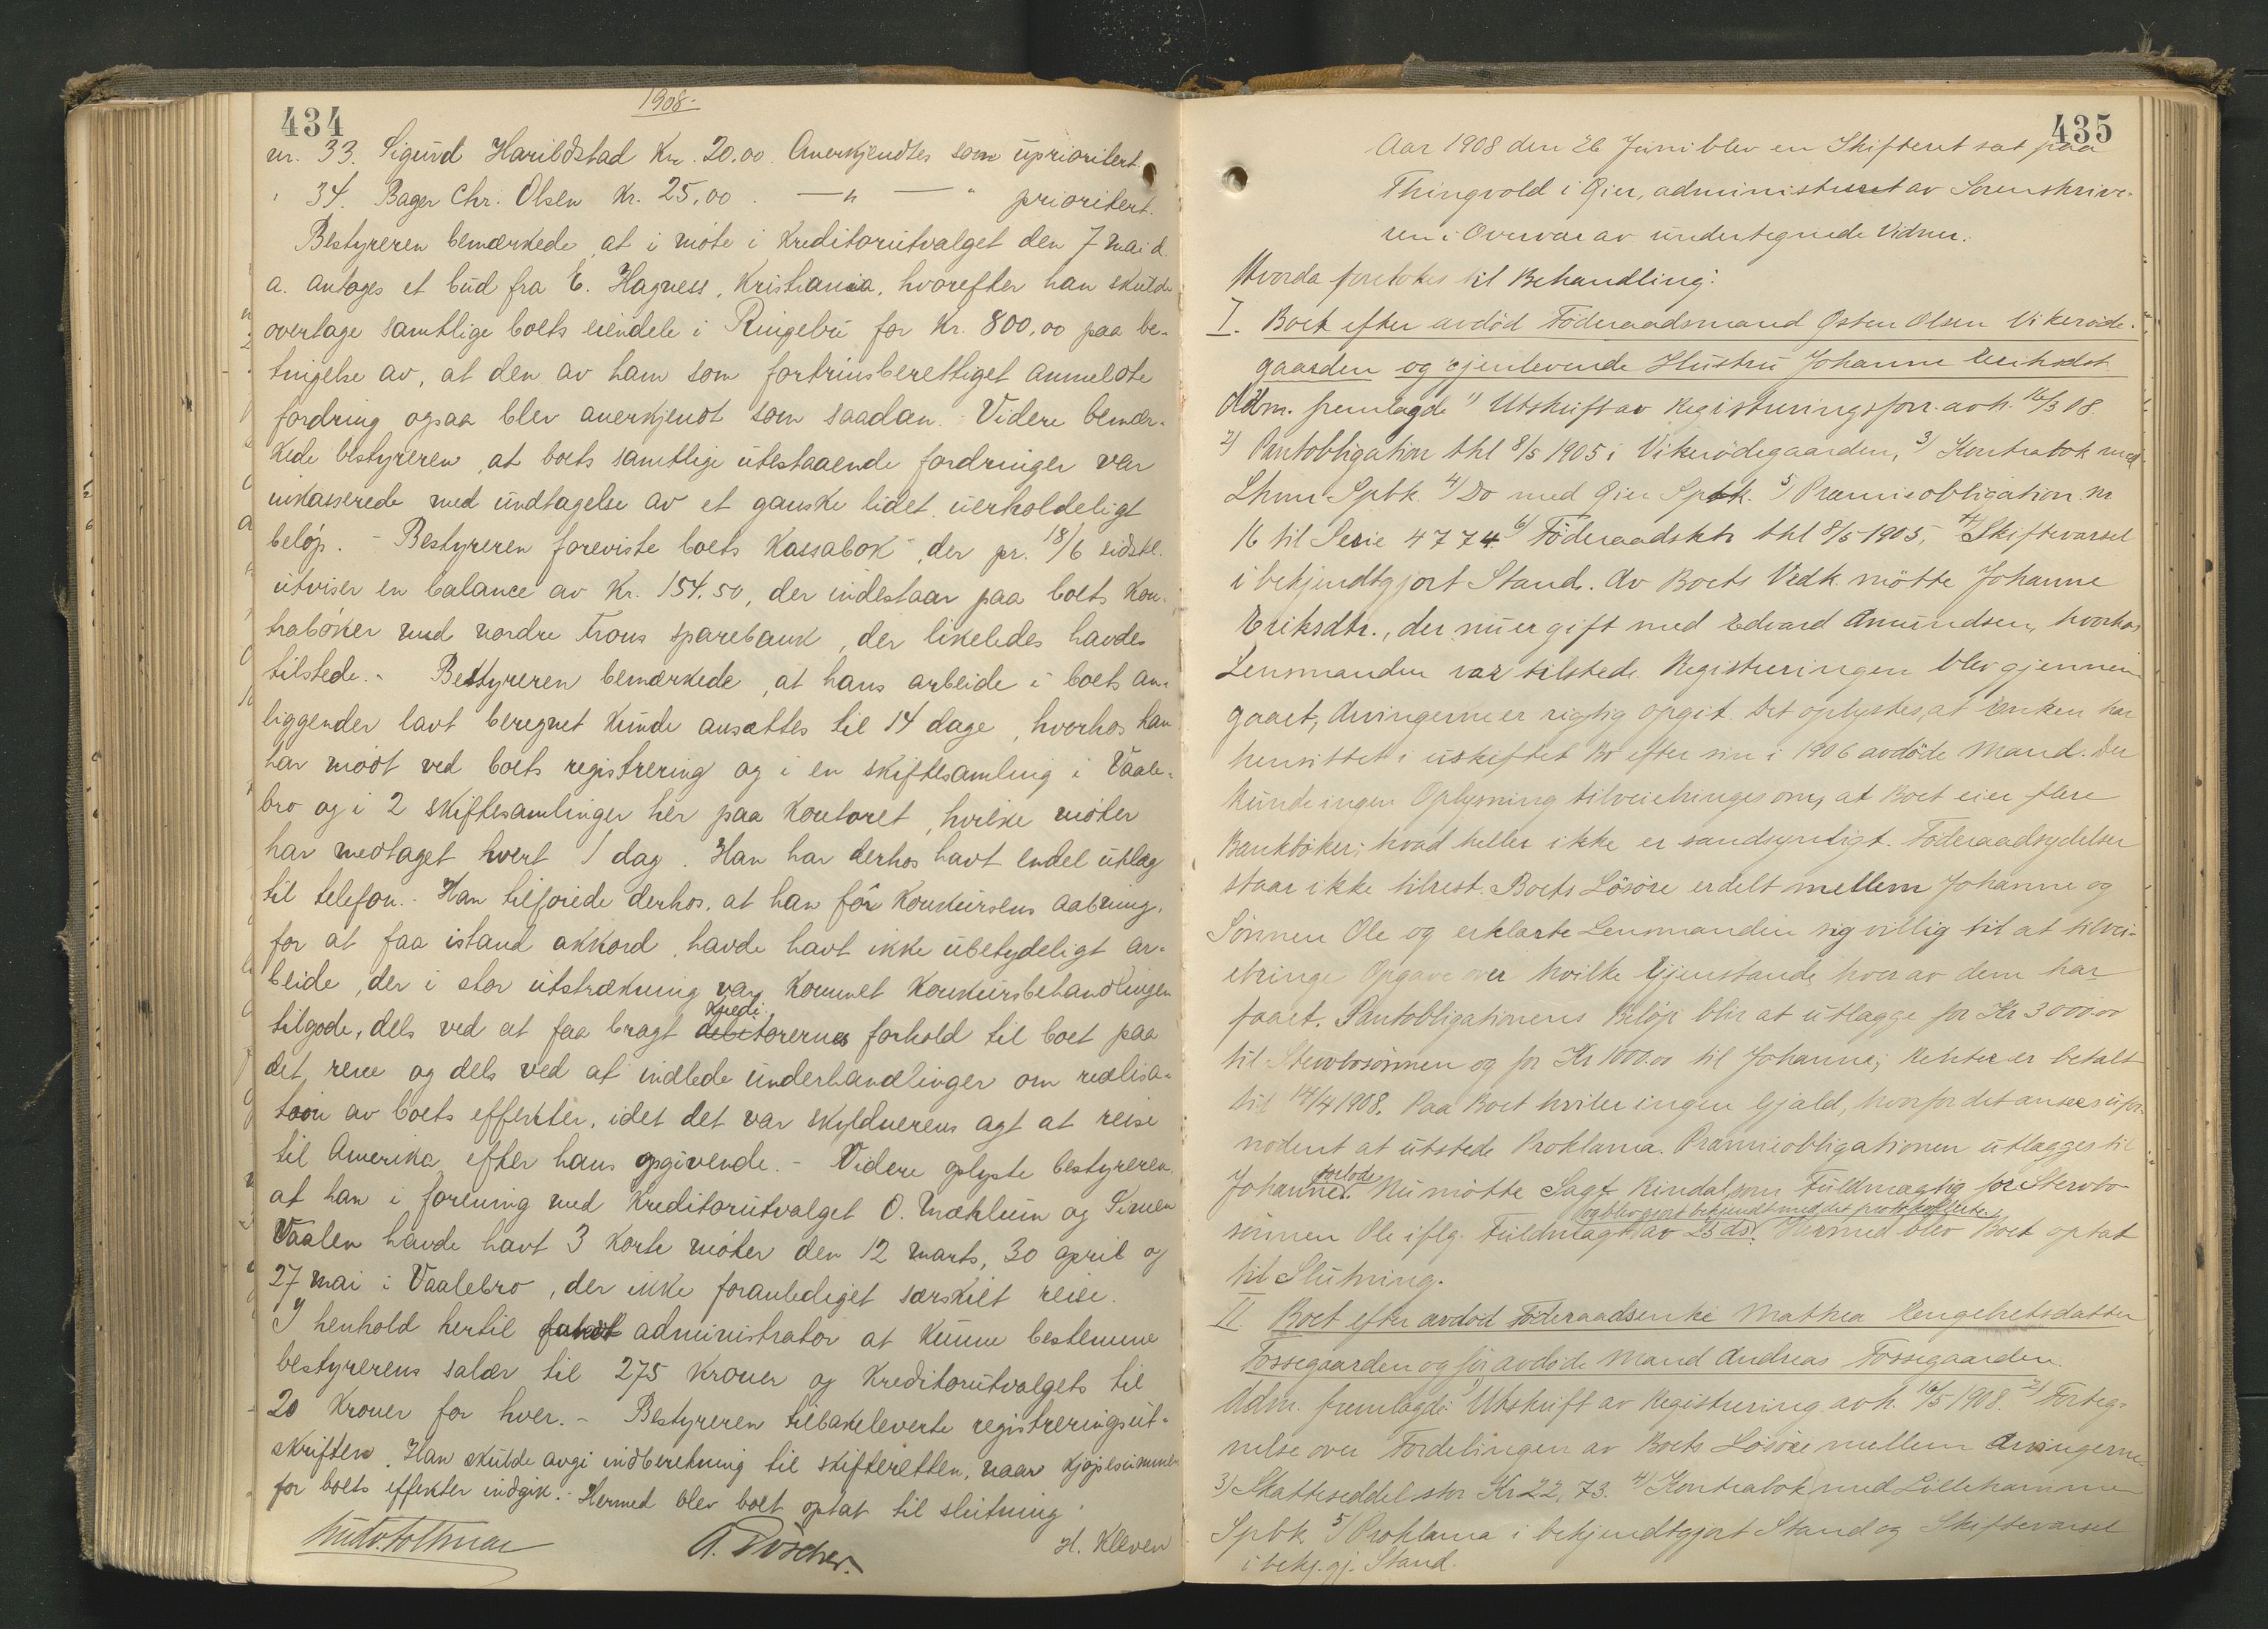 434
1908.
nr. 33. Sigurd Harildstad Kr. 20.00. Anerkjendtes som uprioritert
" 34. Bager Chr. Olsen Kr. 25.00. — " — " prioritert.
Bestyreren bemærkede, at i møte i Kreditorutvalget den 7 mai d.
a. antoges et bud fra E. Hagness, Kristiania, hvorefter han skulde
overtage samtlige boets eiendele i Ringebu for Kr. 800.00 paa be-
tingelse av, at den av ham som fortrinsberettiget anmeldte
fordring ogsaa blev anerkjendt som saadan. Videre bemær-
kede bestyreren, at boets samtlige utestaaende fordringer var
inkasserede med undtagelse av et ganske lidet uerholdeligt
beløp. - Bestyreren foreviste boets Kassabok, der pr. 18/6 sidstl.
utviser en balance av Kr. 154.50, der indestaar paa boets Kon-
trabøker med nordre Frons sparebank, der likeledes havdes
tilstede. - Bestyreren bemærkede, at hans arbeide i boets an-
liggender lavt beregnet kunde ansættes til 14 dage, hvorhos han
har mødt ved boets registrering og i en skiftesamling i Vaale-
bro og i 2 skiftesamlinger her paa Kontoret, hvilke møter
har medtaget hvert 1 dag. Han har derhos havt endel utlæg
til telefon. - Han tilføiede derhos, at han før Konkursens aabning,
for at faa istand akkord, havde havt ikke ubetydeligt ar-
beide, der i stor utstrækning var kommet Konkursbehandlingen
tilgode, dels ved at faa bragt debitorernes Kredi- forhold til boet paa
det rene og dels ved at indlede underhandlinger om realisa-
tion av boets effekter, idet det var skyldnerens agt at reise
til Amerika efter hans opgivende. - Videre oplyste bestyreren,
at han i forening med Kreditorutvalget O. Mæhlum og Simen
Vaalen havde havt 3 korte møter den 12 marts, 30 april og
27 mai i Vaalebro, der ikke foranlediget særskilt reise.
I henhold hertil fandt administrator at kunne bestemme
bestyrerens salær til 275 Kroner og Kreditorutvalgets til
20 Kroner for hver. - Bestyreren tilbakeleverte registreringsut-
skriften. Han skulde avgi indberetning til skifteretten, naar kjøpesummen
for boets effekter indgik. - Hermed blev boet optat til slutning.
H. Kleven
435
Aar 1908 den 26 Juni blev en Skifteret sat paa
Thingvold i Øier, administreret av Sorenskrive-
ren i Overvær av undertegnede Vidner.
Hvorda foretokes til Behandling:
I. Boet efter avdød Föderaadsmand Østen Olsen Vikeröde-
gaarden og gjenlevende Hustru Johanne Eriksdat.
Adm. fremlagde 1) Utskrift av Registreringsforr. avh. 16/3 08.
2) Pantobligation thl 8/5 1905 i Vikerödegaarden, 3) Kontrabok med
Lhmr Spbk. 4) Do med Øier Spbk. 5) Præmieobligation nr
16 til Serie 4774. 6) Föderaadsktr thl 8/5 1905, 7) Skiftevarsel
i bekjendtgjort Stand. Av Boets Vedk. mötte Johanne
Eriksdtr., der nu er gift med Edvard Amundsen, hvorhos
Lensmanden var tilstede. Registreringen blev gjennem-
gaaet; Arvingerne er rigtig opgit. Det oplystes, at Enken har
hensittet i uskiftet Bo efter sin i 1906 avdöde Mand. Der
kunde ingen Oplysning tilveiebringes om, at Boet eier flere
Bankböker; hvad heller ikke er sandsynligt. Föderaadsydelser
staar ikke tilrest. Boets Lösöre er delt mellem Johanne og
Sönnen Ole og erklærte Lensmanden sig villig til at tilvei-
ebringe Opgave over hvilke Gjenstande hver av dem har
faaet. Pantobligationens Belöp blir at utlægge for Kr 3000.00
til Stervbosönnen og for Kr 1000.00 til Johanne; Renter er betalt
til 14/4 1908. Paa Boet hviler ingen Gjæld, hvorfor det ansees ufor-
nodent at utstede Proklama. Præmieobligationen utlægges til
Johanne. Nu mötte Sagf. Rindal som Fuldmægtig for Stervbo-
sönnen Ole iflg. Fuldmagt av 25 ds. og blev gjort bekjendt med det protokollerte. Hermed blev Boet optat
til Slutning.
II. Boet efter avdöd Föderaadsenke Mathea Engebretsdatter
Fossegaarden og för avdöde Mand Andreas Fossegaarden.
Adm. fremlagde: 1) Utskrift av Registrering avh. 16/5 1908. 2) Forteg-
nelse over Fordelingen av Boets Lösöre mellem Arvingerne
3) Skatteseddel stor Kr 22,73. 4) Kontrabok med Lillehammer
Spbk. 5) Proklama i bekjendtgjort Stand og Skiftevarsel
i bekj.gj. Stand.